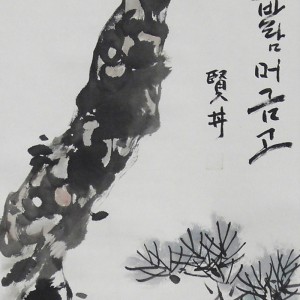 바람 머금고
賢井